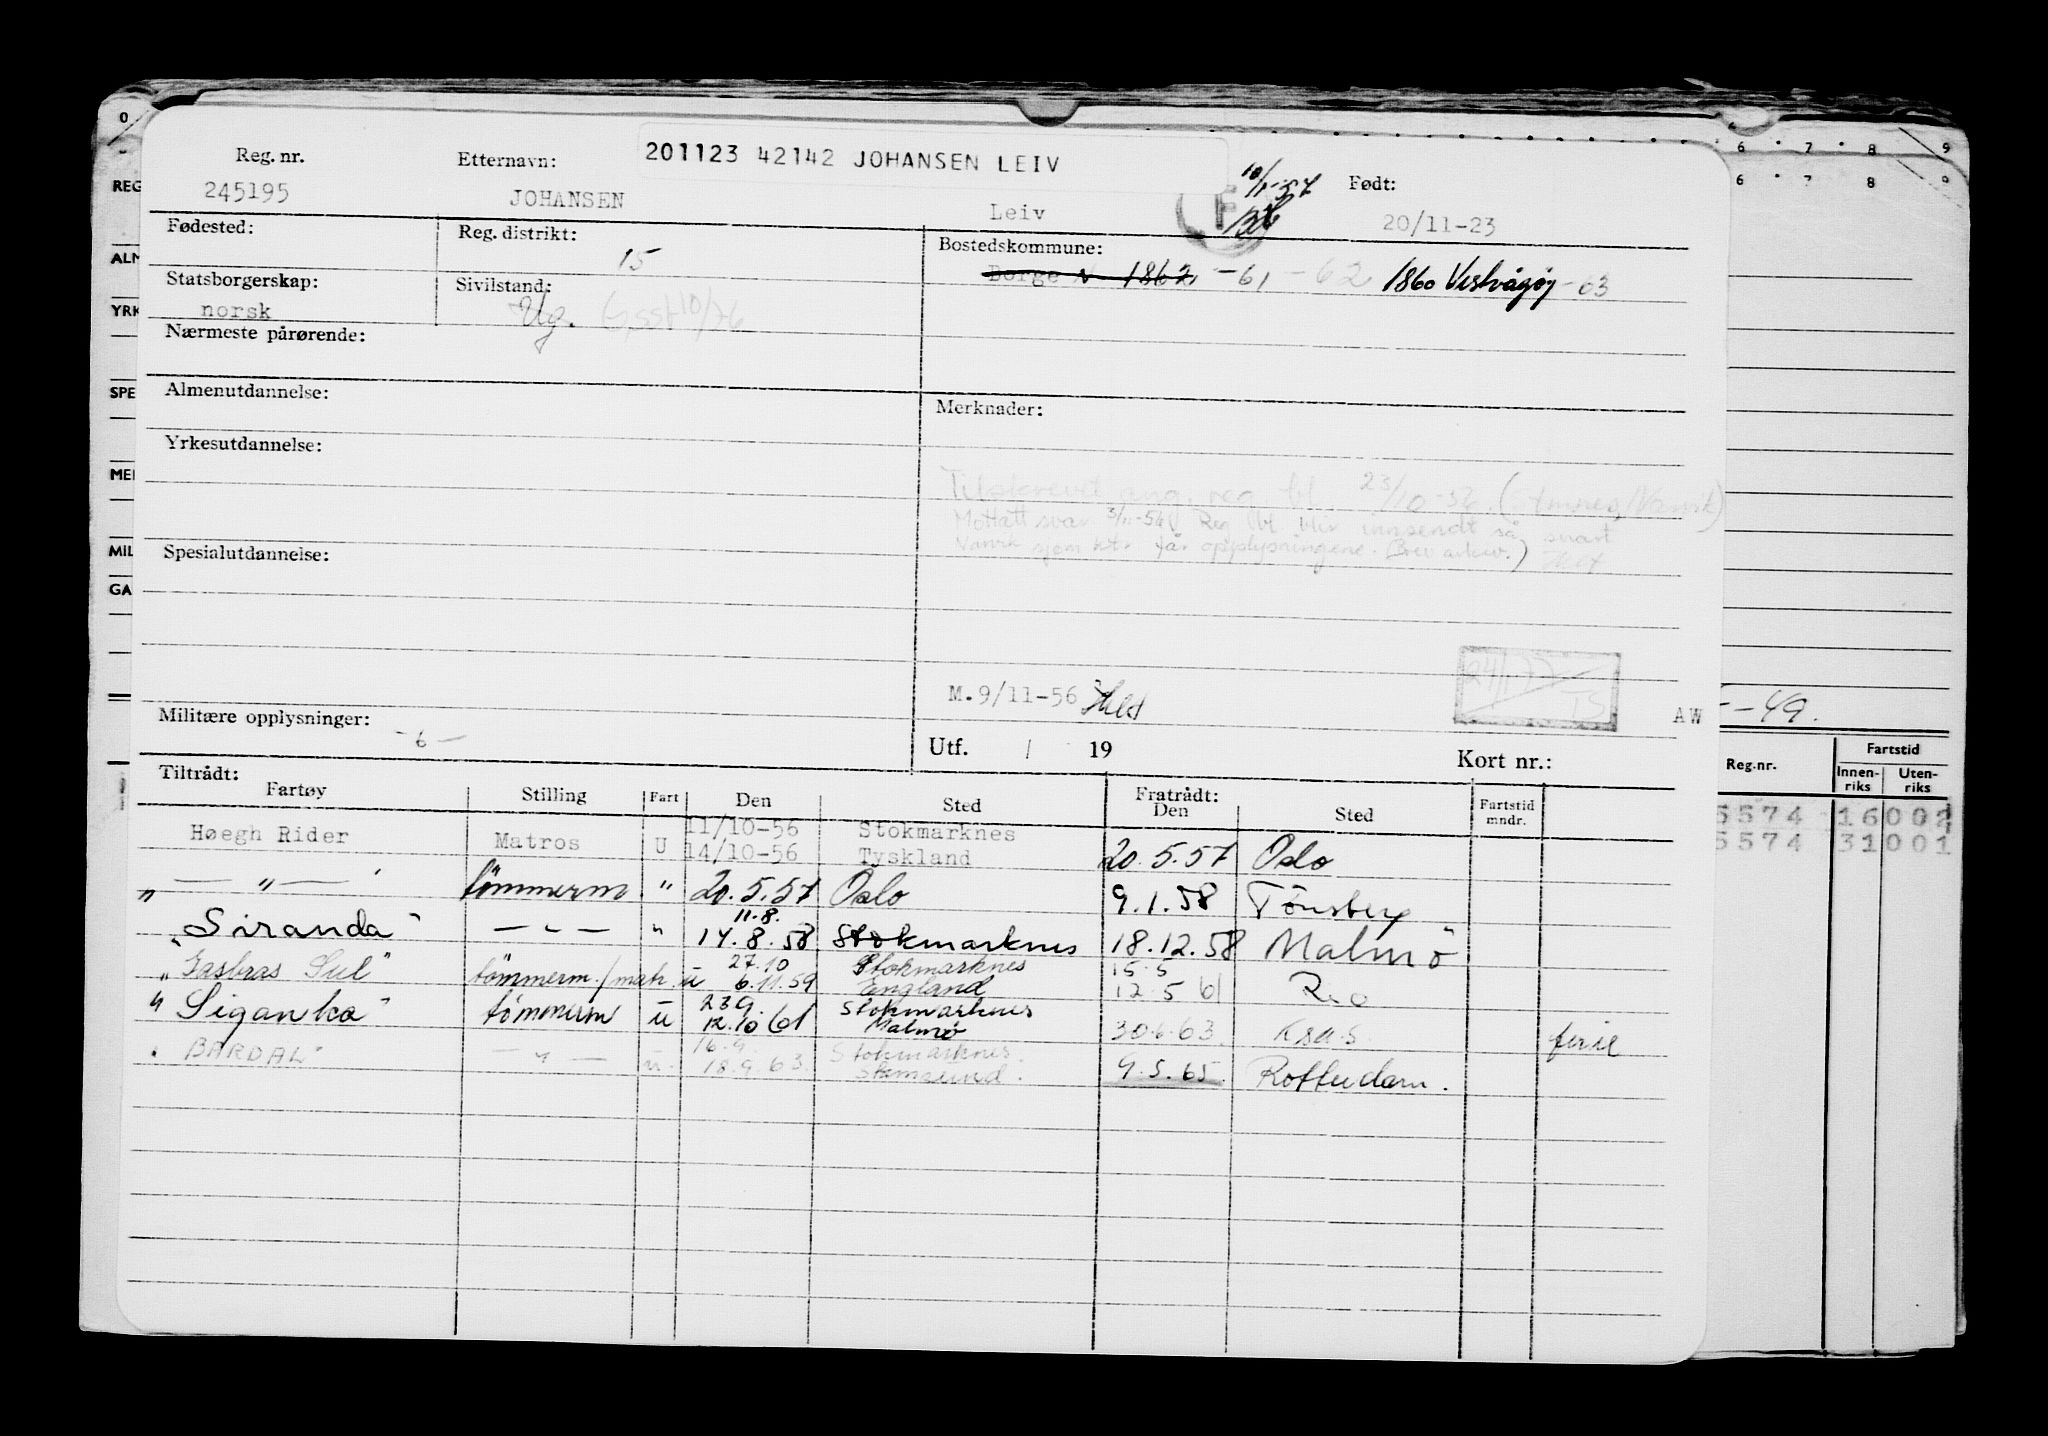 201123 42142 JOHANSEN LEIV
Reg. nr. Etternavn: Født:
245195 JOHANSEN Leiv 20/11-23
Fødested: Reg. distrikt: 15 Bostedskommune:
Borge N 1862 -61 -62 1860 Vestvågøy -63
Statsborgerskap: norsk Sivilstand: Ug.
Nærmeste pårørende:
Almenutdannelse: Merknader:
Yrkesutdannelse:
Tilskrevet ang. reg. bl. 23/10-56.
Mottatt svar 3/11-56 Reg bl. blir innsendt så snart
sjøm ktr får opplysningene. (Brev arkiv.)
Spesialutdannelse:
M. 9/11-56
24/1-77 TS
AW
Militære opplysninger: -6-
Utf. / 19 Kort nr.:
Tiltrådt: Fratrådt:
Fartøy Stilling Fart Den Sted Den Sted Fartstid mndr.
Høegh Rider Matros U 11/10-56 Stokmarknes
14/10-56 Tyskland 20.5.57 Oslo
— " — tömmerm " 20.5.57 Oslo 9.1.58 Tönsberg
11.8.
"Siranda" — " — " 14.8.58 Stokmarknes 18.12.58 Malmö
27.10 Stokmarknes 15.5
tömmerm./matr. u 6.11.59 England 12.5 61 Rio
"Siganka" tömmerm u 23.9. Stokmarknes
12.10 61 Malmø 30.6.63 ferie
"BARDAL" — " — u. 16.9. Stokmarknes.
18.9.63. 9.5.65. Rotterdam.
0 6 7 8 9
6 7 8 9
REG
ALM
YRK
SPE
MER
MIL
GA
-49.
Reg.nr. Fartstid
Innenriks Utenriks
5574 16002
5574 31001